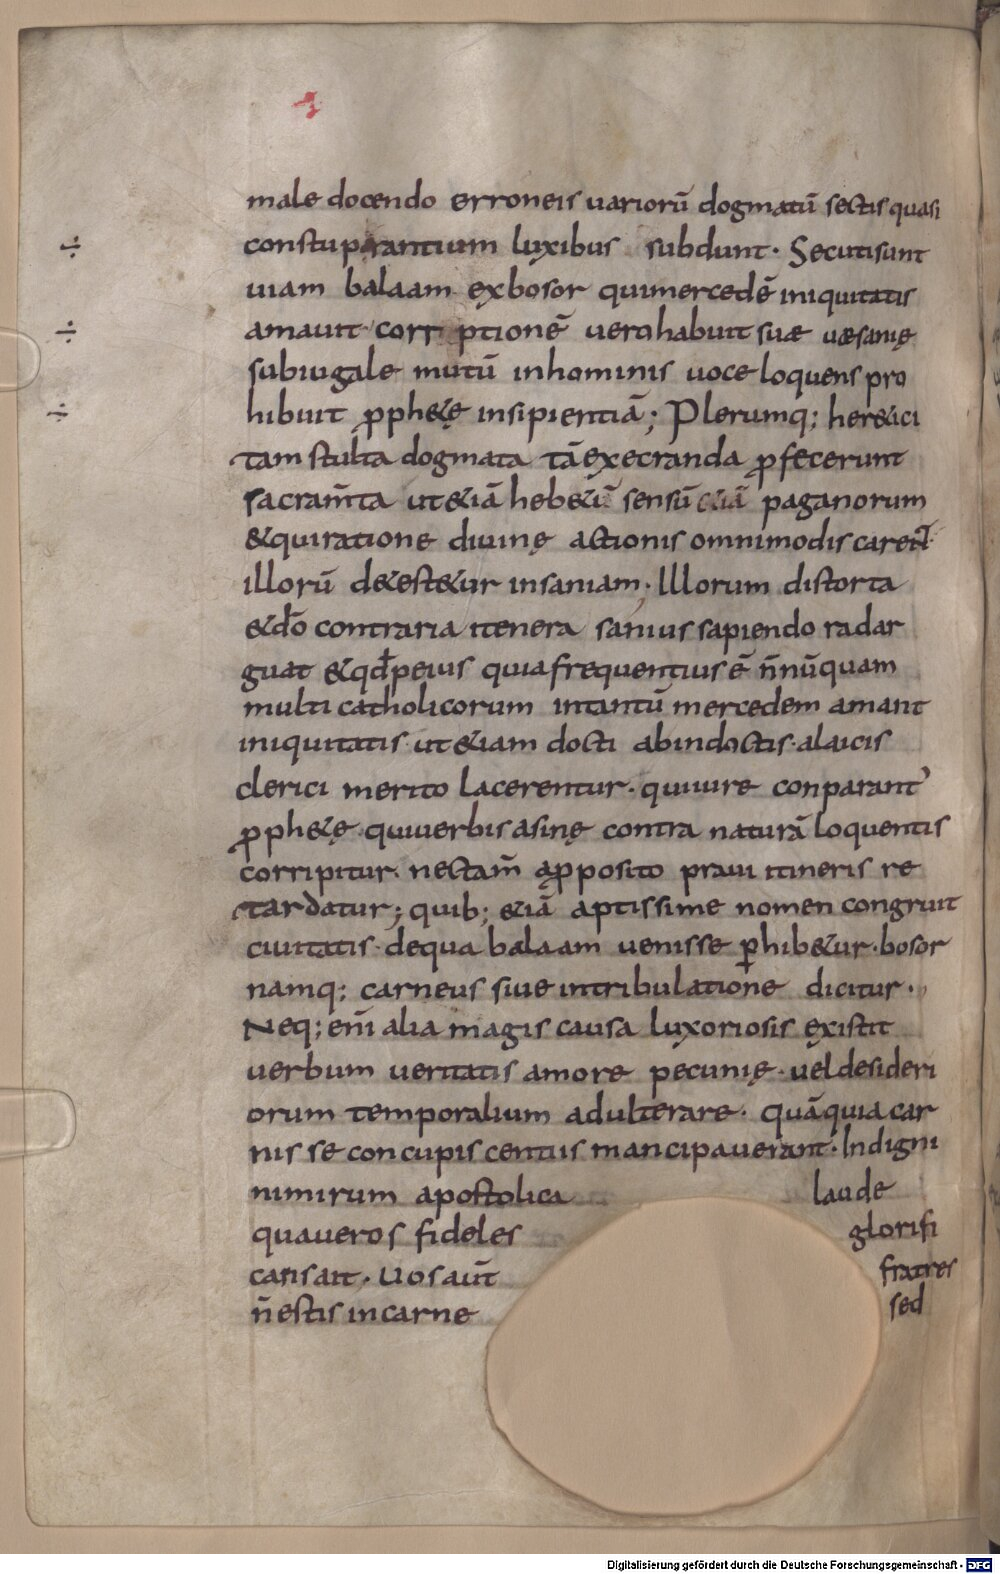 male docendo erroneis uariorū dogmatū sectis quasi
constuprantium luxibus subdunt. Secuti sunt
uiam balaam ex bosor qui mercedē iniquitatis
amauit corr ptionē uero habuit suæ uæsanię
subiugale mutū in hominis uoce loquens pro
hibuit ꝓph&ę insipientiā; Plerumq; her&ici
tam stulta dogmata tā execranda ꝓfecerunt
sacram̄ta ut &iā heb&ū sensū &iā paganorum
& qui ratione diuinę actionis omnimodis carent
illorū d&est&ur insaniam. Illorum distorta
& dō contraria itenera sanius sapiendo radar
guat & qđ peius quia frequentius ē n̄nūquam
multi catholicorum intantū mercedem amant
iniquitatis ut &iam docti ab indoctis. a laicis
clerici merito lacerentur. qui iure conparant᷑
ꝓph&ę qui uerbis asinę contra naturā loquentis
corripitur. nec tam̄ a ꝓposito praui itineris re
tardatur; quib; &iā aptissime nomen congruit
ciuitatis de qua balaam uenisse ꝑhib&ur. bosor
namq; carneus siue in tribulatione dicitur.
Neq; eni᷑ alia magis causa luxoriosis existit
uerbum ueritatis amore pecunię. uel desideri
orum temporalium adulterare. quā quia car
nis se concupiscentiis mancipauerant. Indigni
nimirum apostolica laude
qua ueros fideles glorifi
cans ait. Uos aut̄ fratres
n̄ estis in carne sed
Digitalisierung gefördert durch die Deutsche Forschungsgemeinschaft - DFG